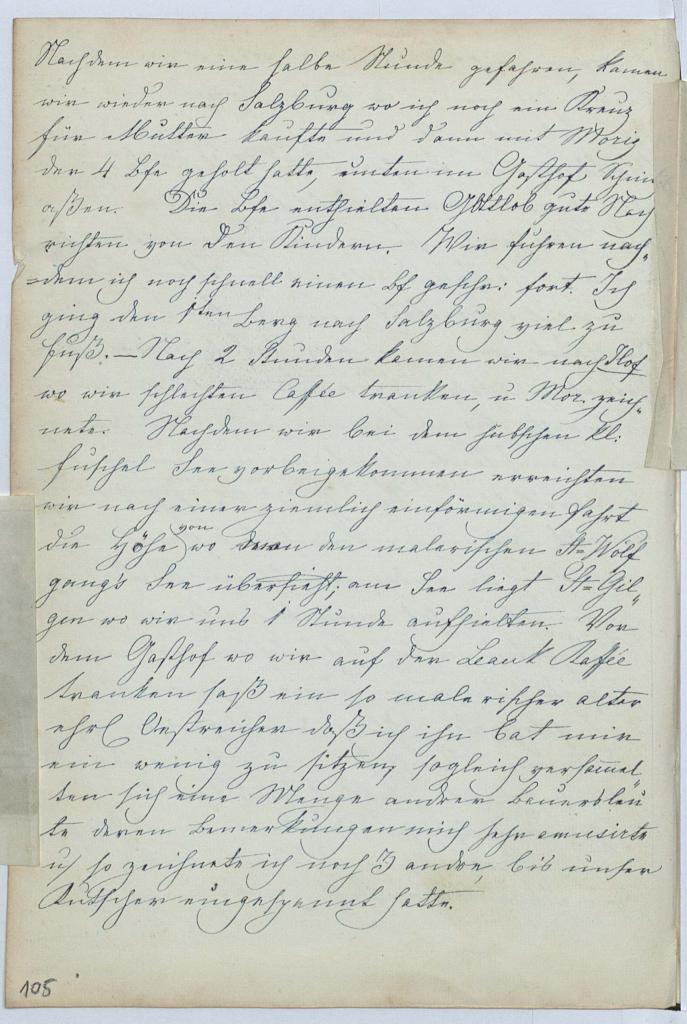 Nachdem wir eine halbe Stunde gefahren, kamen
wir wieder nach Salzburg wo ich noch ein Kreuz
für Mutter kaufte und dann mit Moriz
der 4 Bfe geholt hatte, unten im Gasthof
aßen. Die Bfe enthielten Gottlob gute Nach
richten von den Kindern. Wir fuhren nach„
=dem ich noch schnell einen Bf geschr: fort. Ich
ging den 1ten Berg nach Salzburg viel zu
Fuß. — Nach 2 Stunden kamen wir nach Hof
wo wir schlechten Caffée tranken, u Mor. zeich„
nete. Nachdem wir bei dem hübschen kl:
Fuschel See vorbeigekommen erreichten
wir nach einer ziemlich einförmigen Fahrt
die Höhe von wo den malerischen St= Wolf
gangs See übersieht; am See liegt St= Gil„
gen wo wir uns 1 Stunde aufhielten. Vor
dem Gasthof wo wir auf der Bank Kaffée
tranken saß ein so malerischer alter
ehrl Oestreicher daß ich ihn bat mir
ein wenig zu sitzen, sogleich versam̄el
ten sich eine Menge andrer Bauersleu„
te deren Bemerkungen mich sehr amusirte
u/ so zeichnete ich noch 3 andre, bis unser
Kutscher eingespannt hatte.
105